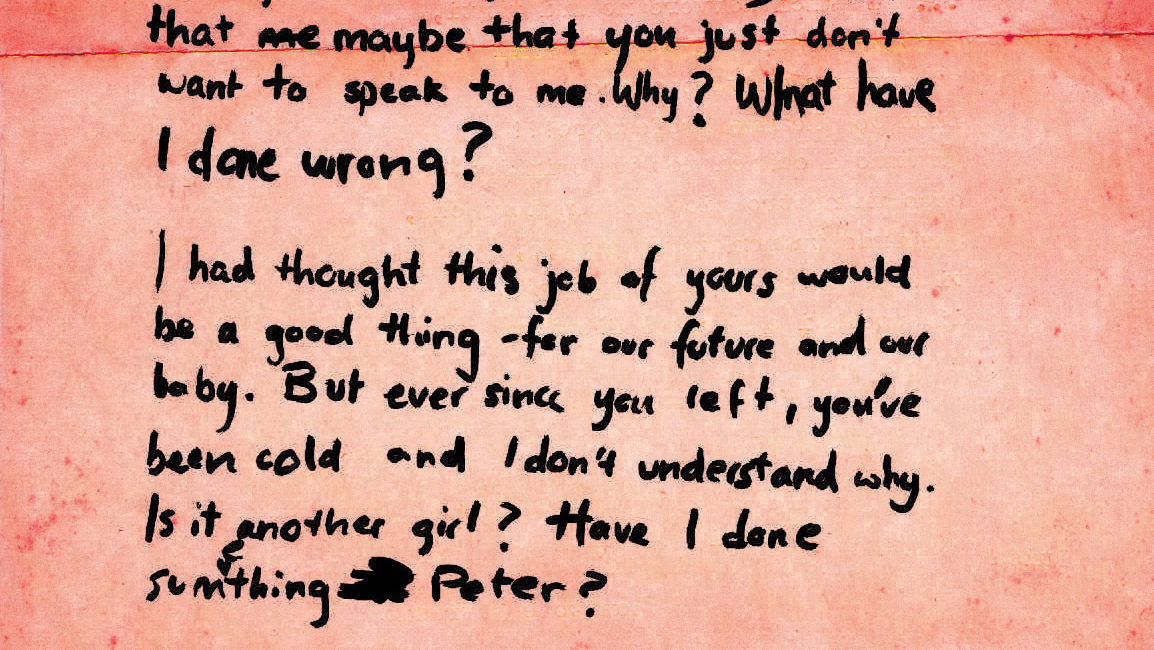 that me maybe that you just don't
want to speak to me. Why? What have
I done wrong?
I had thought this job of yours would
be a good thing - for our future and our
baby. But ever since you left, you've
been cold and I don't understand why.
Is it another girl? Have I done
sumething Peter?